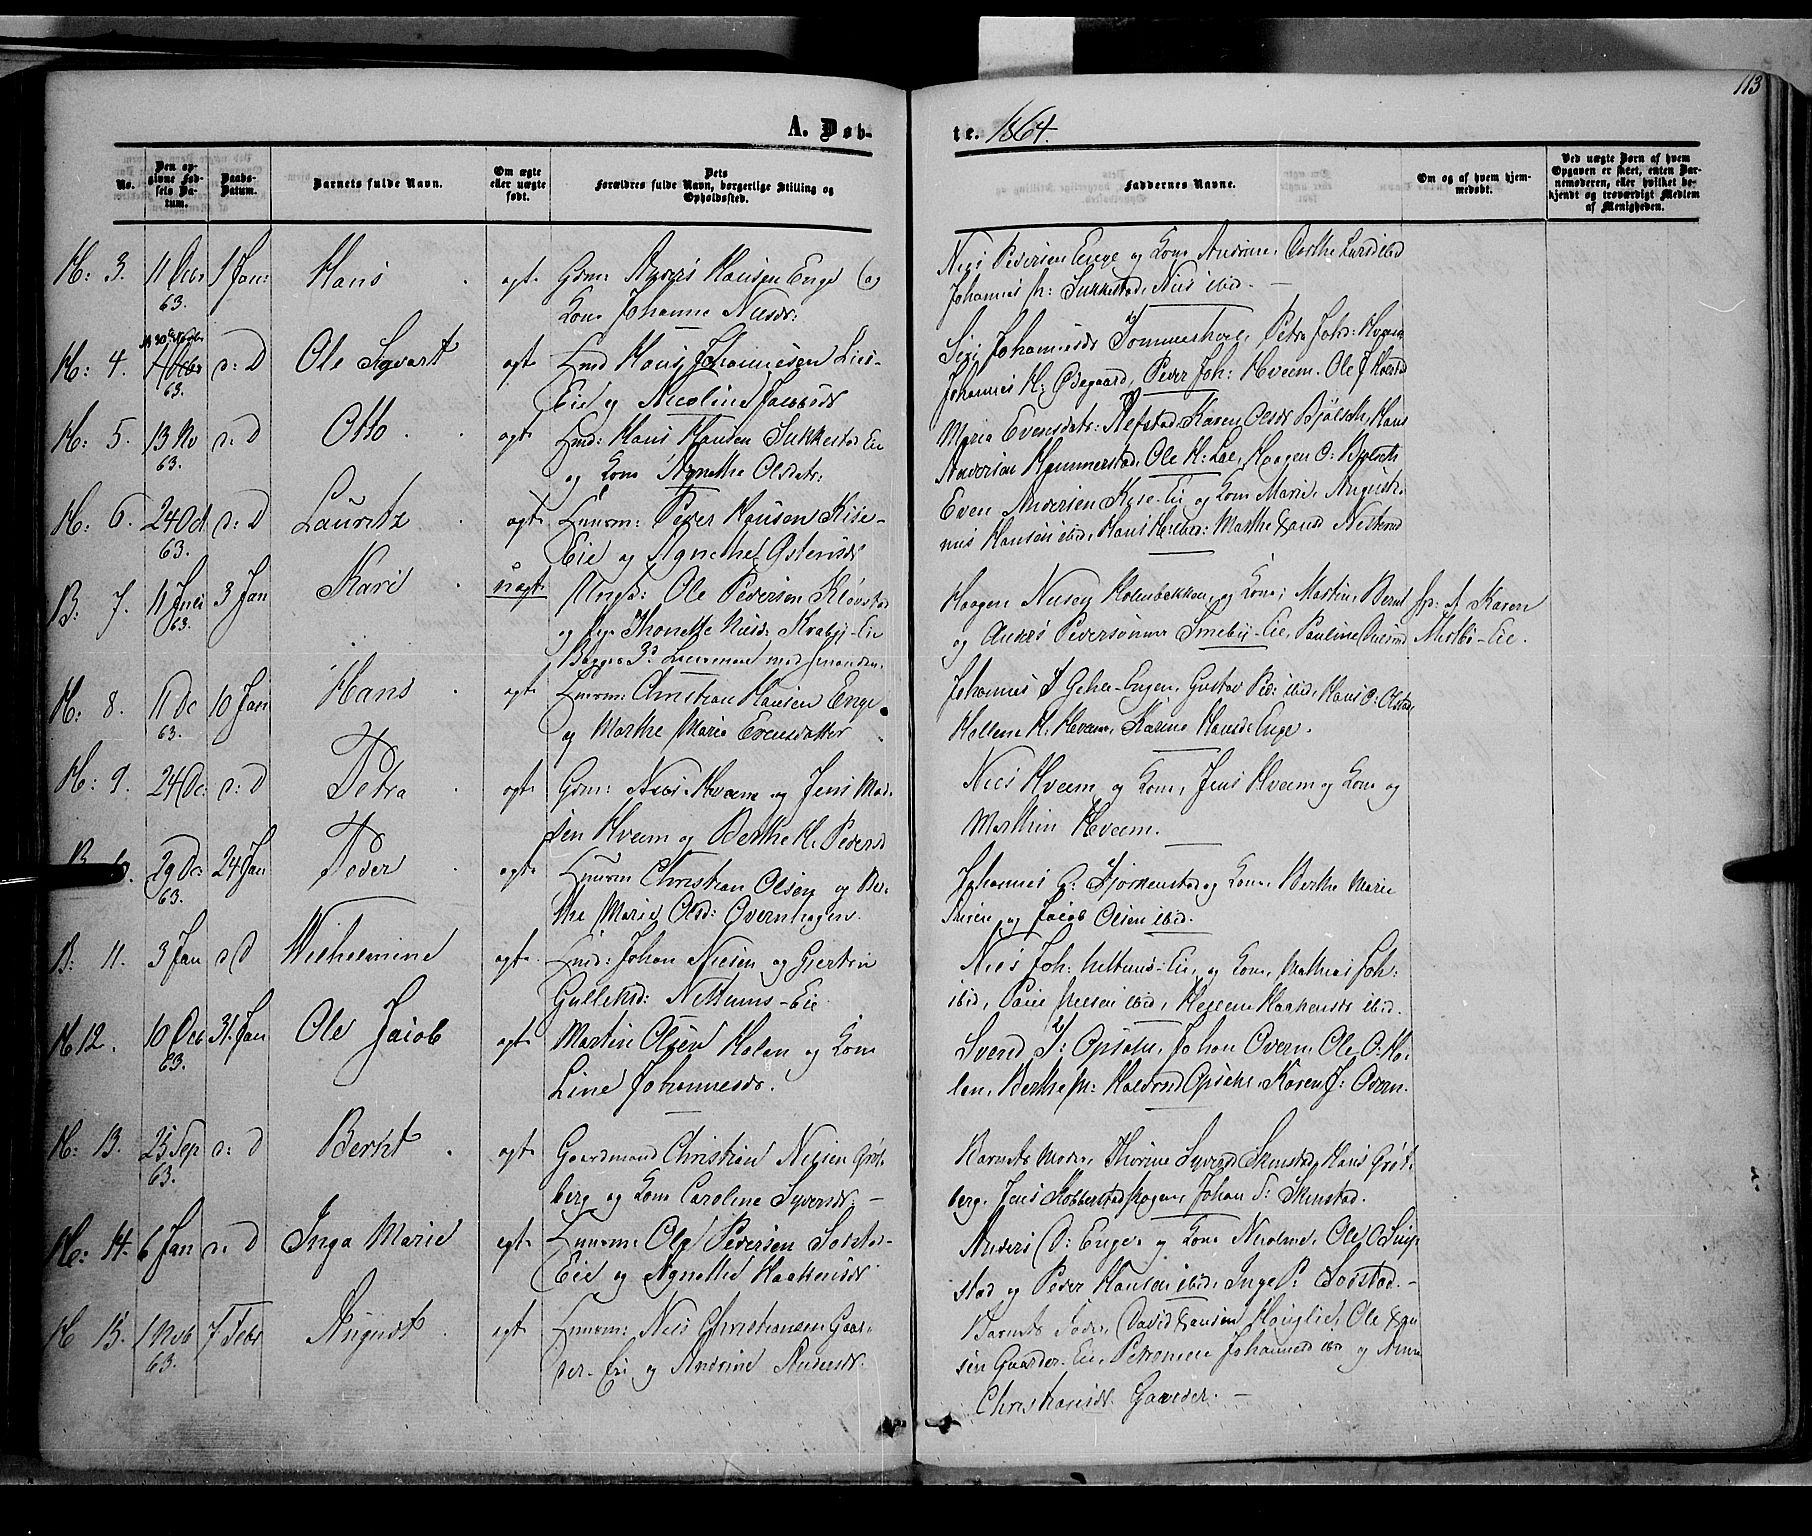 113
A. Døb-
te. 1864.
No.
Den opgivne Fødsels Datum.
Daabs-Datum.
Barnets fulde Navn.
Om ægte eller uægte født.
Dets Forældres fulde Navn, borgerlige Stilling og Opholdssted.
Faddernes Navne.
Om og af hvem hjemmedøbt.
Ved uægte Børn af hvem Opgaven er skeet, enten Barnemoderen, eller hvilket bekjendt og troværdigt Medlem af Menigheden.
H: 3. 11 Decbr 63. 1 Jan: Hans ægte Grm: Anders Hansen Enge og
Kone Johanne Nilsdr:
Nils Pedersen Enge og Kone Andrine, Dorthe Larsd ibid
Johannes P: Sukkestad, Nils ibid. —
H: 4. 63. d: D Ole Sigvart ægte Hmd Hans Johannesen Lies-
Eie og Nicoline Jacobsdr
Siri Johannesdr Tommershoel, Petra Joh: Hveem
Johannes H: Ødegaard, Peder Joh: Hveem. Ole J Kolstad
H: 5. 13 Nv 63. d: D Otto. ægte Hmd: Hans Hansen Sukkestad Eie
og Kone Agnethe Olsdatr:
Maria Evensdatr: Alfstad, Karen Olsdr Bjølseth, Hans
Andersen Hammerstad, Ole H: Lie, Haagen O: Bjølseth
H: 6. 24 Oct 63. d: D Lauritz ægte Huusm: Peder Hansen Kise-
Eie og Agnethe Østensdr
Even Andersen Kise-Eie og Kone Marie, August.
B: 7. 11 Juli 63. 3 Jan Kari uægte Ungk: Ole Pedersen Kløvstad
og Pige Thonette Nilsd: Kraby-Eie
Begges 3d Leiermaal med hinanden
Haagen Kolmbekken, og Kone, Martin, Bernt
og Anders Pedersønner Smeby-Eie, Pauline
J. Karen
Melbø-Eie.
H: 8. 11 Dc 63. 10 Jan Hans ægte Huusm: Christian Hansen Enge
og Marthe Maria Evensdatter
Johannes Engen, Gustav Ped: ibid, Hans O: Alstad
Hellene H. Hveem, Karine Hansd: Enge.
H: 9. 24 Dc: d: D Petra ægte Grm: Nils Hveem og Jens Mad-
sen Hveem og Berthe H. Pedersd
Nils Hveem og Kone, Jens Hveem og Kone og
Mathin Hveem.
B 10. 29 Dc: 63. 24 Jan Peder ægte Huusm Christian Olsen og Ber-
the Marie Olsd: Overnhagen.
Johannes P: Fjorkenstad og Kone, Berthe Marie
og Jacob Olsen ibid.
B: 11. 3 Jan d: D Wilhelmine ægte Hmd: Johan Nilsen og Gjertin
Gulliksd: Nettums-Eie
Nils Joh: Nettums-Eie, og Kone, Mathias Joh:
ibid, Pauline Nilsen ibid, Hellene Haakensdr ibid.
H 12. 10 Dec 63. 31. Jan Ole Jacob ægte Martin Olsen Holen og Kone
Line Johannesdr.
Svend J: Opsahl, Johan Overn, Ole O: Ho-
len, Berthe M: Halvorsd Opsahl, Karen J: Overn.
H: 13. 25 Sep 63. d: D Bernt. ægte Gaardmand Christian Nilsen Grøt-
berg og Kone Caroline Syversdr. —
Barnets Moder, Thorine Syversd Skinstad, Hans Grøt-
berg, Jens Kobberstadhagen, Johan S: Skinstad.
H: 14. 6 Jan d: D Inga Marie ægte Huusm: Ole Pedersen Solstad-
Eie og Agnethe Haakensdr
Anders O: Enge og Kone Nicoline, Ole O. Lund-
stad og Peder Hansen ibid, Inge P: Solstad. —
H 15. 1 Novb 63. 7 Febr August. ægte Huusm: Nils Christiansen Gaar-
der-Eie og Andrine Andersdr.
Barnets Fader, David Hansen Houglie, Ole Han-
sen Gaarder-Eie, Petronille Johannesd ibid og Anne
Christiansdr Gaarder. —